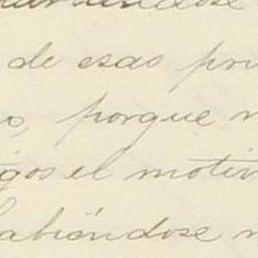 de esas pri
o, porque n
gos el motiv
abiéndose n